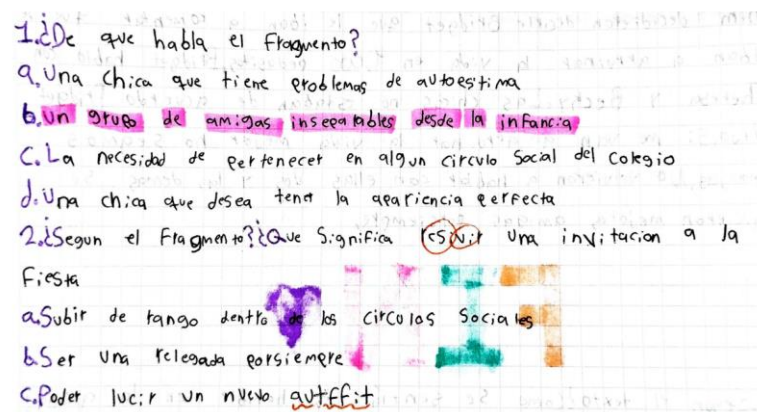 1.¿De que habla el Fragmento?
a. Una chica que tiene problemas de autoestima
b. Un grupo de amigas inseparables desde la infancia
c. La necesidad de pertenecer en algun circulo social del colegio
d. Una chica que desea tener la apariencia perfecta
2.¿Segun el Fragmento?¿Que Significa resivir una invitacion a la
Fiesta
a. Subir de rango dentro de los circulos Sociales
b. Ser una relegada porsiempre
c. Poder lucir un nuevo autffit